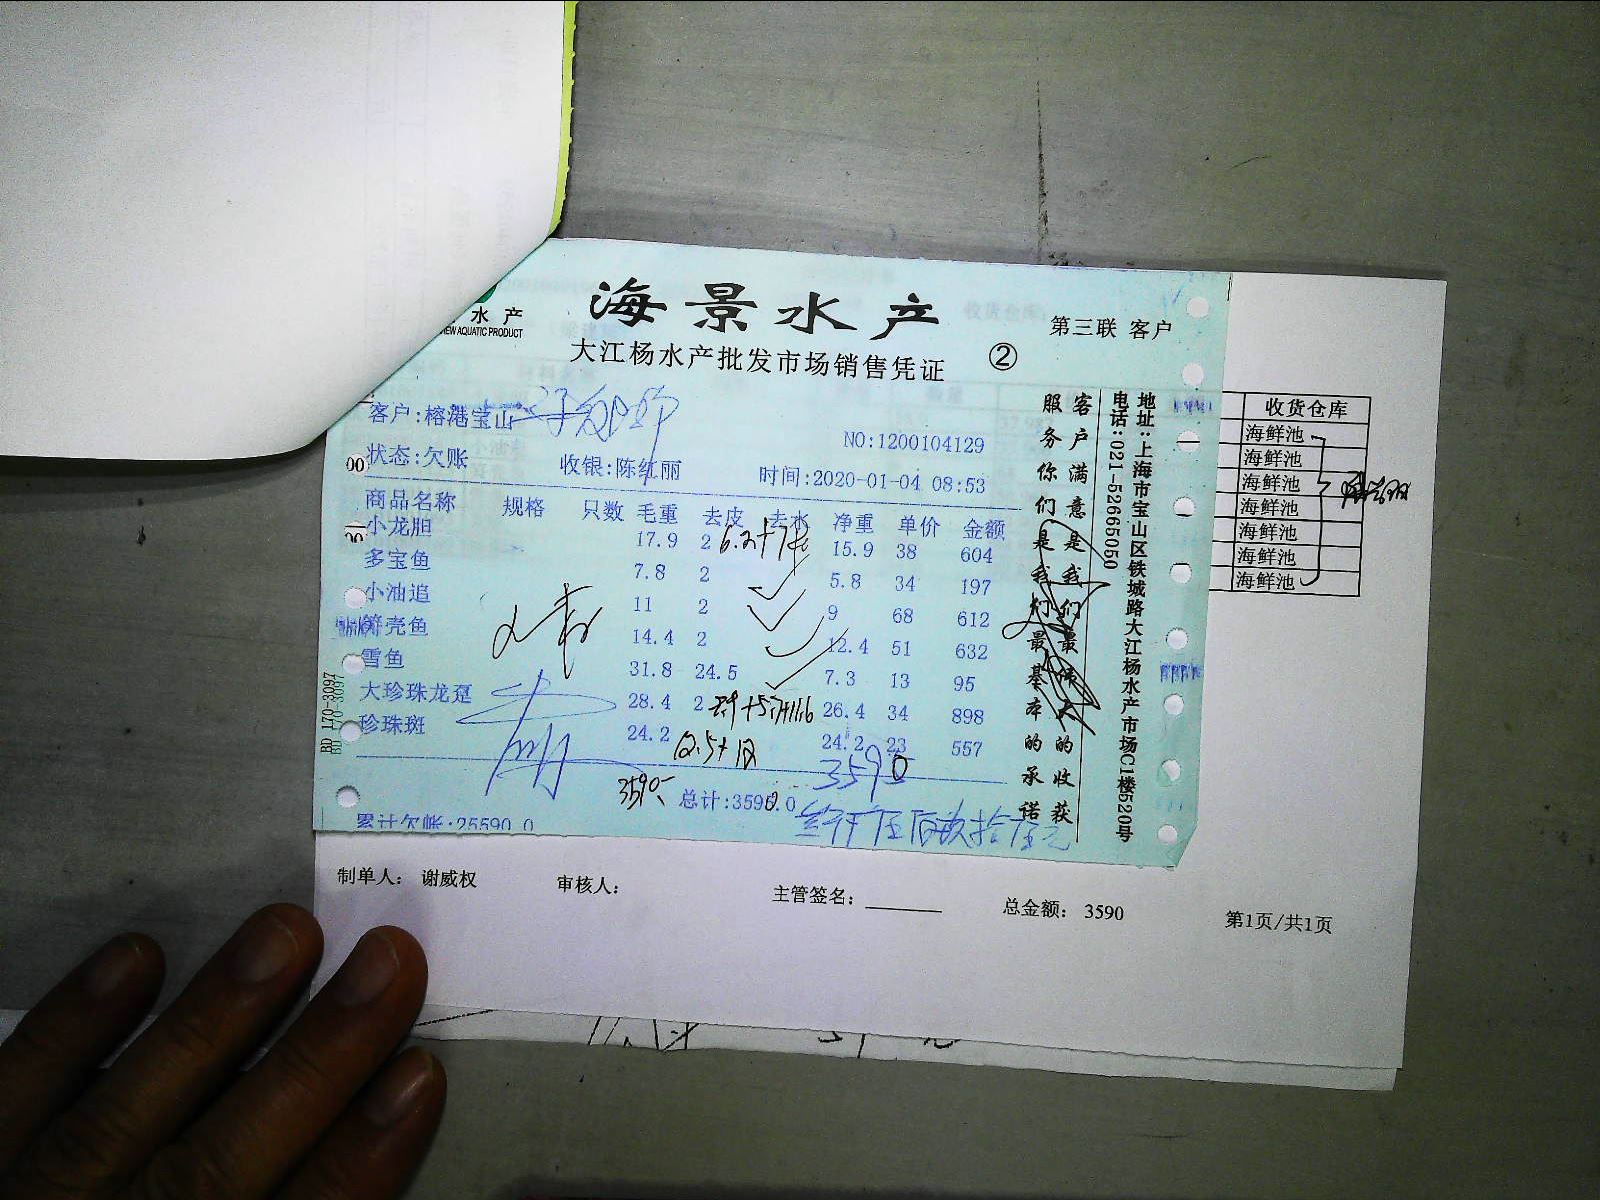 水产
IEW AQUATIC PRODUCT
海景水产
大江杨水产批发市场销售凭证
②
第三联 客户
客户:榕港宝山
NO:1200104129
状态:欠账 收银:陈红丽 时间:2020-01-04 08:53
商品名称 规格 只数 毛重 去皮 去水 净重 单价 金额
小龙胆 17.9 2 15.9 38 604
多宝鱼 7.8 2 5.8 34 197
小油追 11 2 9 68 612
笋壳鱼 14.4 2 12.4 51 632
雪鱼 31.8 24.5 7.3 13 95
大珍珠龙趸 28.4 2 26.4 34 898
珍珠斑 24.2 24.2 23 557
3590
3590
总计:3590.0
累计欠帐:25590.0
客户满意是我们最大的收获
服务你们是我们最基本的承诺
地址:上海市宝山区铁城路大江杨水产市场C1楼520号
电话:021-52665050
BD 170-3097
收货仓库
海鲜池
海鲜池
海鲜池
海鲜池
海鲜池
海鲜池
海鲜池
制单人: 谢威权 审核人: 主管签名: 总金额: 3590 第1页/共1页